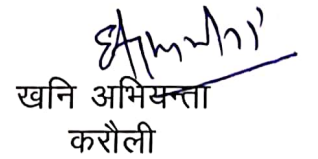 खनि अभियन्ता
करौली